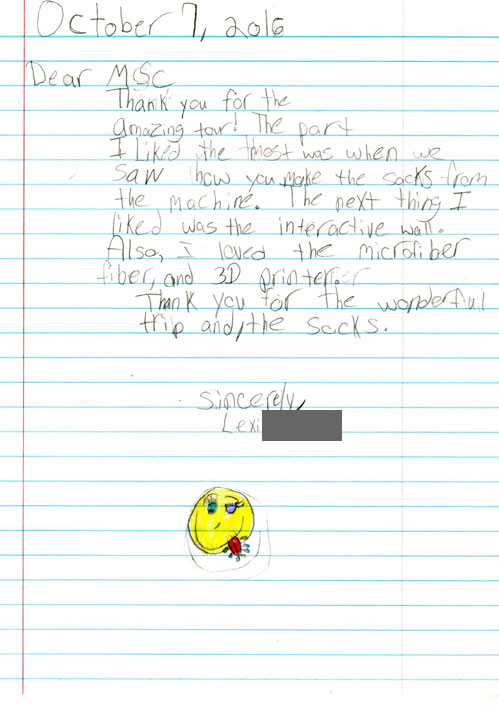 October 7, 2016
Dear MSC
Thank you for the
amazing tour! The part
I Liked the most was when we
saw how you make the socks from
the machine. The next thing I
liked was the interactive wall.
Also, I loved the microfiber
fiber, and 3D printer.
Thank you for the wonderfull
trip and, the socks.
Sincerely,
Lexi